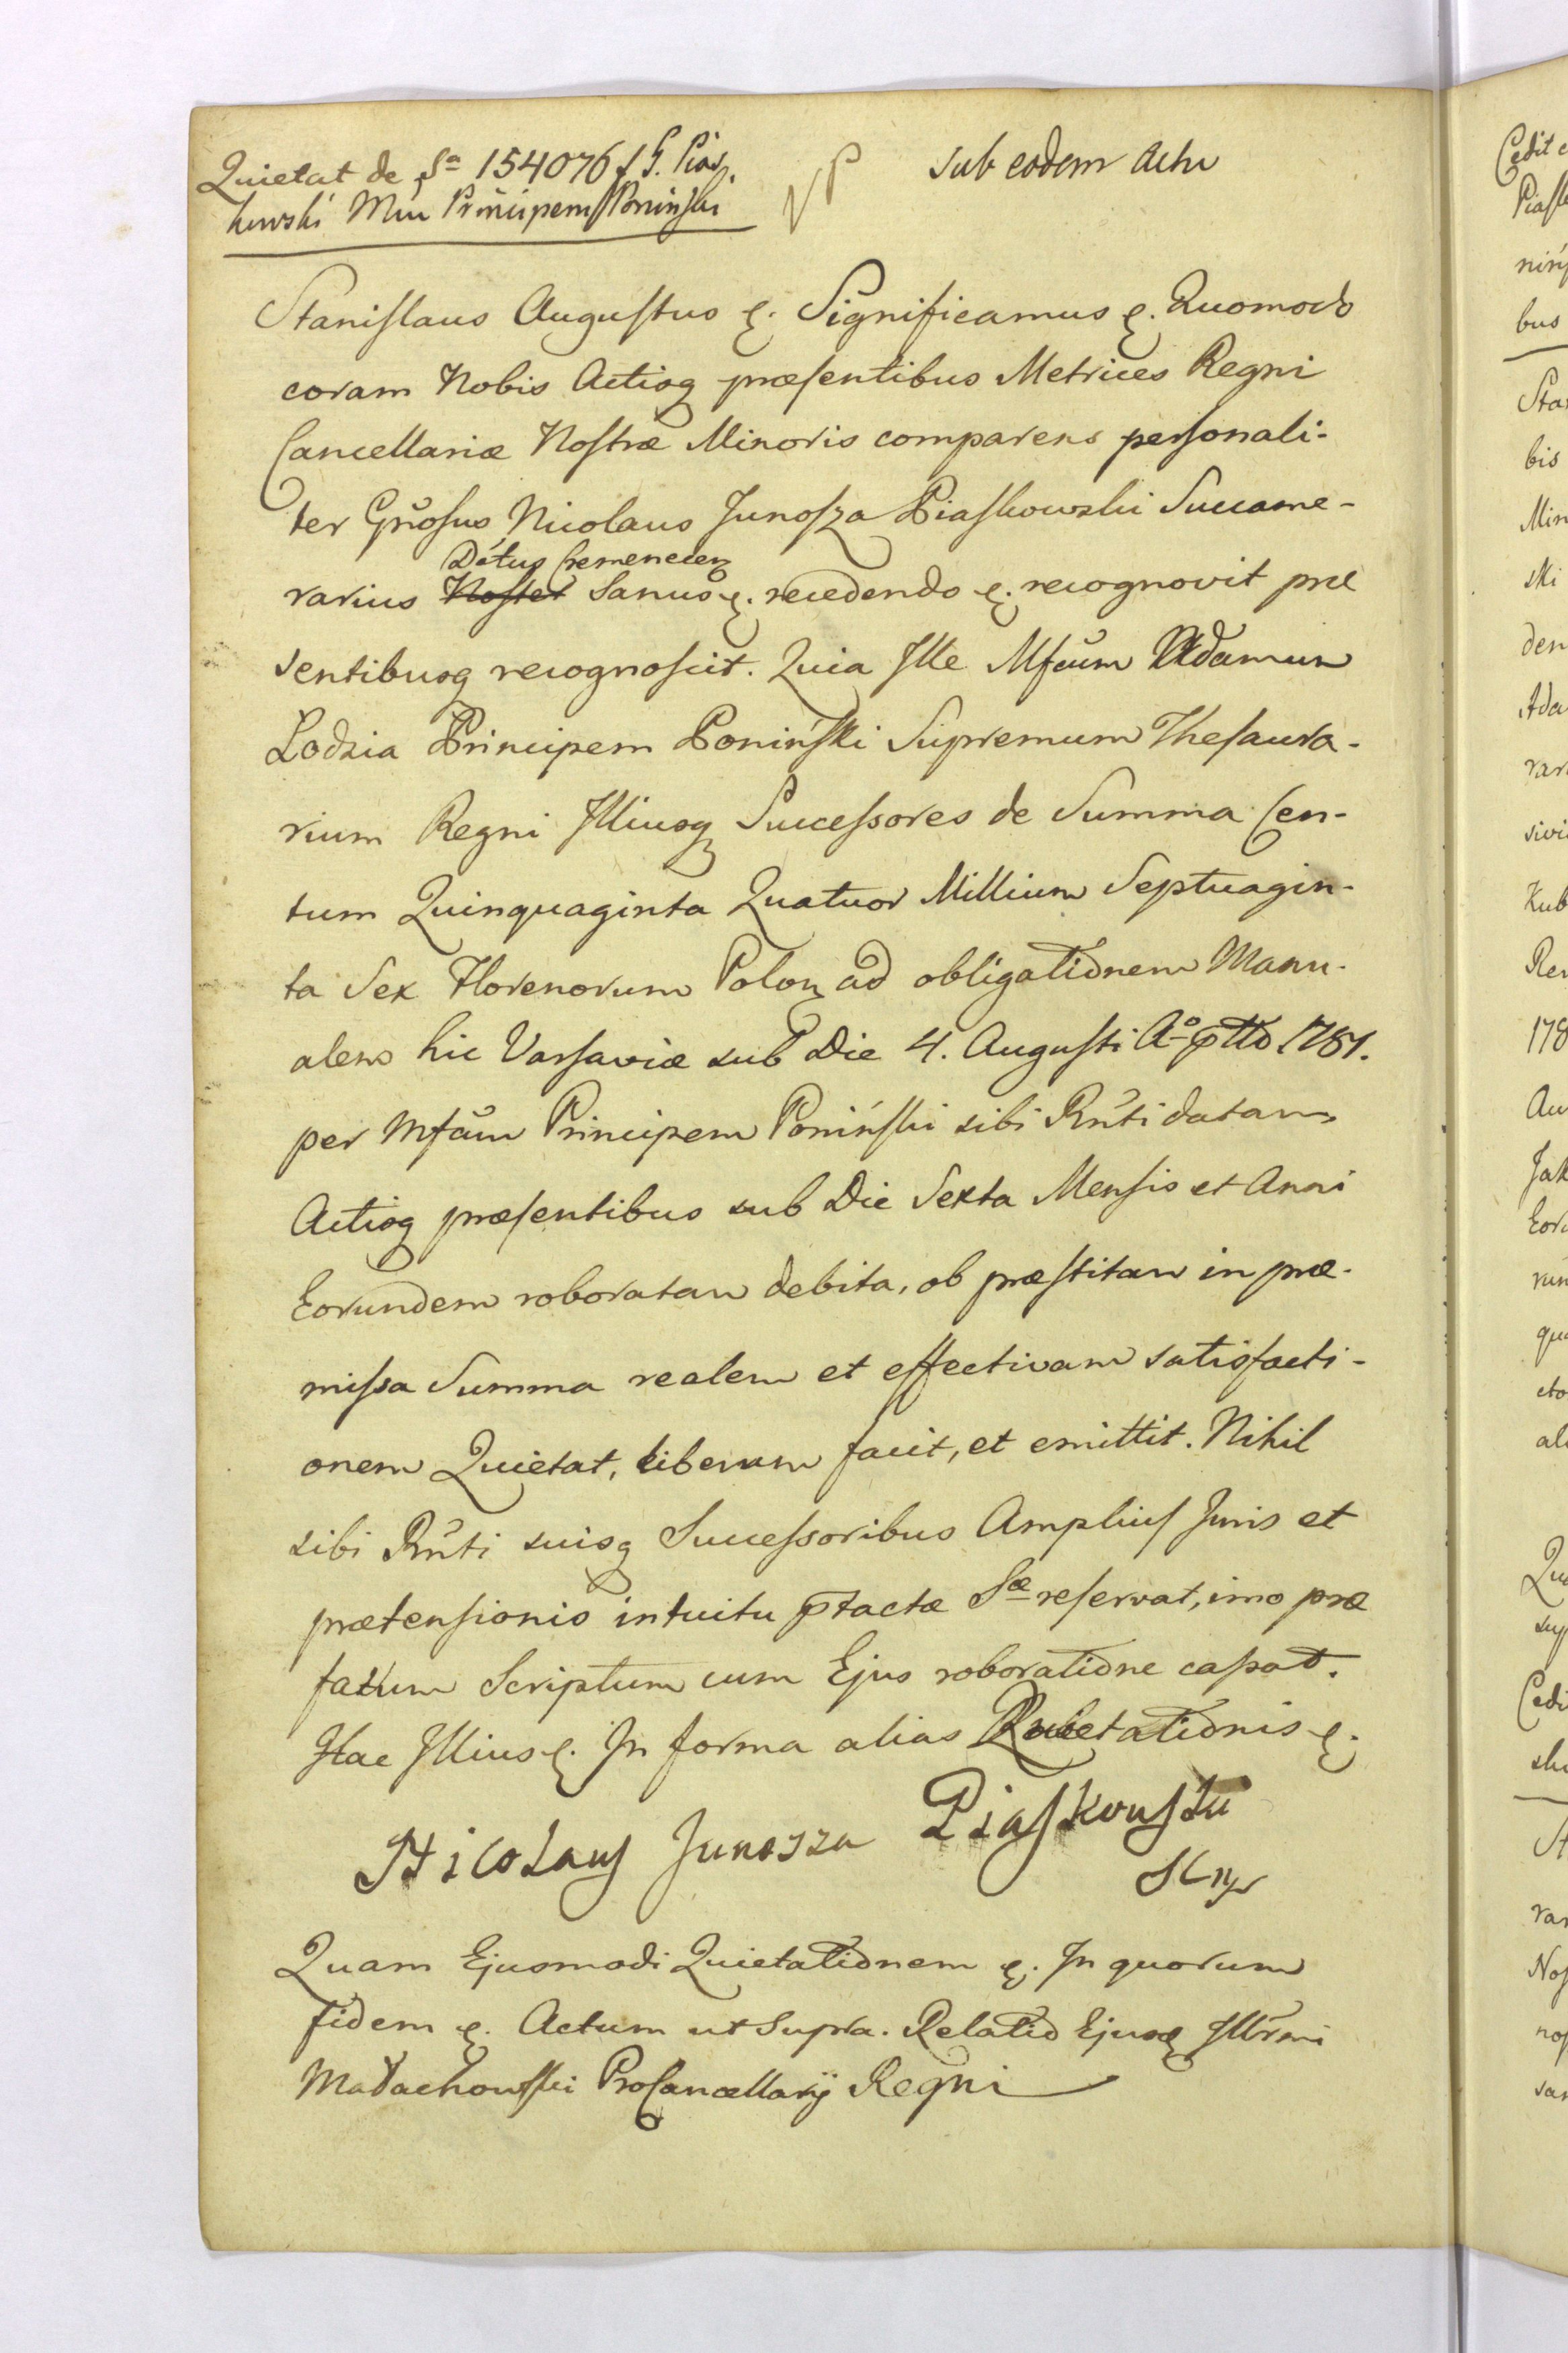 Quietat de Sa 154076 f G. Pias.
kowski Mcu Principem Poninski
NP
sub eodem Actu
Stanislaus Augustus &. Significamus &. Quomodo
coram Nobis Actisq præsentibus Metrices Regni
Cancellariæ Nostræ Minoris comparens personali-
ter Gnosus Nicolaus Junosza Piaskowski Succame-
Dctus Cremenecen
rarius Noster Sanus &. recedendo &. recognovit præ
sentibusq recognoscit. Quia Ille Mfcum Adamum
Lodzia Principem Poniński Supremum Thesaura-
rium Regni Illiusq Successores de Summa Cen-
tum Quinquaginta Quatuor Millium Septuagin-
ta Sex Florenorum Polon ad obligationem Manu-
alem hic Varsaviæ sub Die 4. Augusti Ao ptto 1781.
per Mfcum Principem Poniński sibi Rnti datam
Actisq præsentibus sub Die Sexta Mensis et Anni
Eorundem roboratam debita, ob præstitam in præ-
missa Summa realem et effectivam satisfacti-
onem Quietat, liberum facit, et emittit. Nihil
sibi Rnti suisq Successoribus Amplius Juris et
prætensionis intuitu ptactæ Sæ reservat, imo præ
fatum Scriptum cum Ejus roboratione cassat.
Hac Illius &. In forma alias Quietationis &.
Nicolaus Junosza Piaskowski
Quam Ejusmodi Quietationem &. In quorum
fidem &. Actum ut Supra. Relatio Ejusq Illmi
Małachowski ProCancellarij Regni